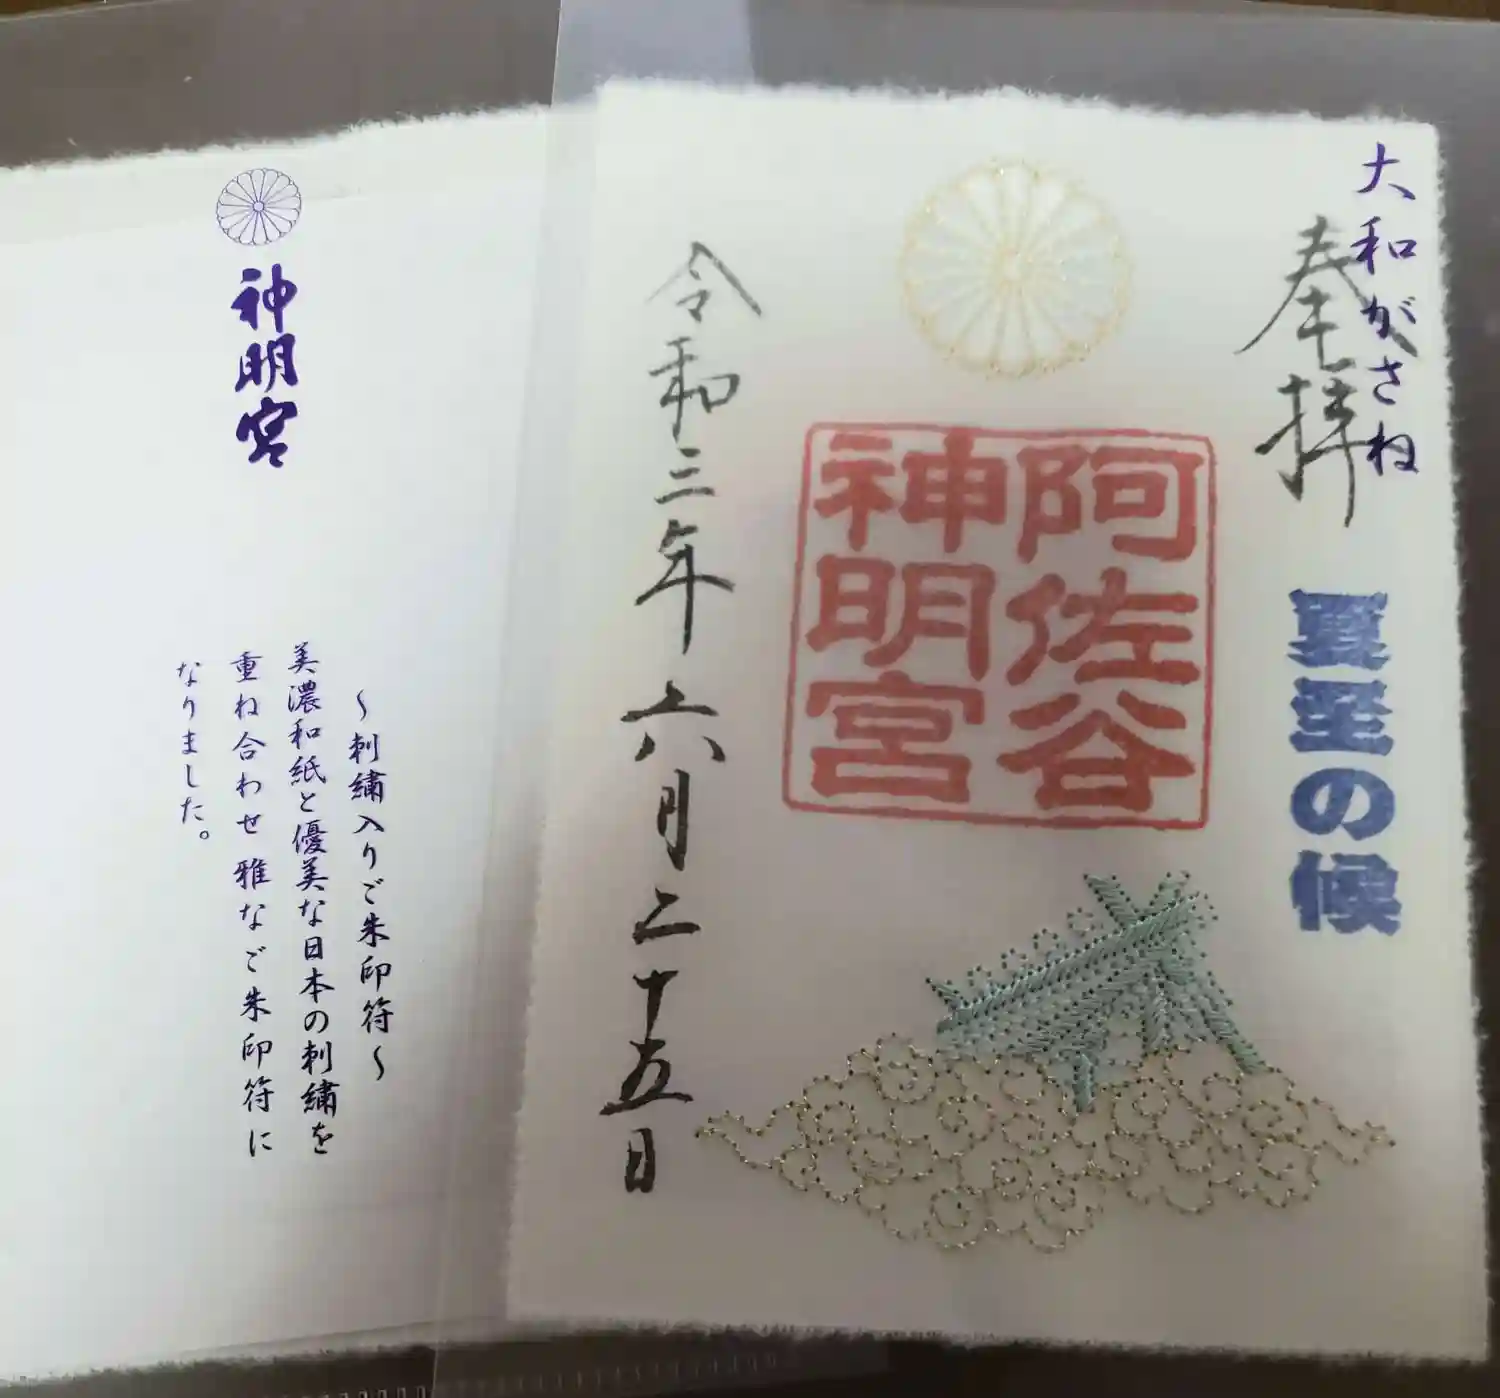 大和がさね
奉拝
夏至の候
阿佐谷
神明宮
令和三年六月二十五日
～刺繍入りご朱印符～
美濃和紙と優美な日本の刺繍を
重ね合わせ 雅なご朱印符に
なりました。
神明宮